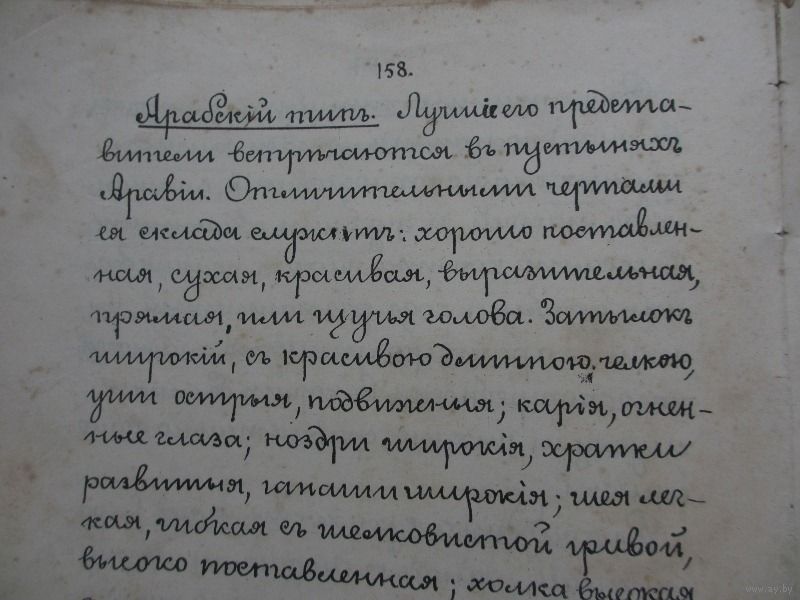 158.
Арабскій типъ. Лучшіе его предста-
вители встрѣчаются въ пустыняхъ
Аравіи. Отличительными чертами
ея склада служатъ: хорошо поставлен-
ная, сухая, красивая, выразительная,
прямая, или щучья голова. Затылокъ
широкій, съ красивою длинною челкою,
уши острыя, подвижныя; карія, огнен-
ные глаза; ноздри широкія, храпки
развитыя, ганаши широкія; шея лег-
кая, гибкая съ шелковистой гривой,
высоко поставленная; холка высокая
www.ay.by